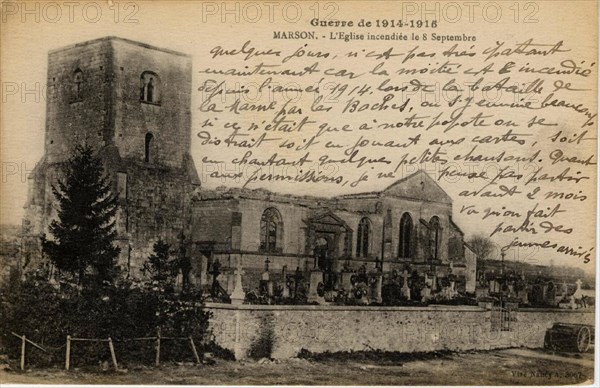 Guerre de 1914-1916
MARSON. - L'Eglise incendiée le 8 Septembre
quelques jours, n'est pas très épatant
maintenant car la moitié a été incendié
depuis l'année 1914 lors de la bataille de
la Marne par les Boches, on s'y ennuie beaucoup
si ce n'était que à notre popote on se
distrait soit en jouant aux cartes, soit
en chantant quelques petites chansons. Quant
aux permissions, je ne pense pas partir
avant 2 mois
vu qu'on fait
partir des
jeunes arrivés